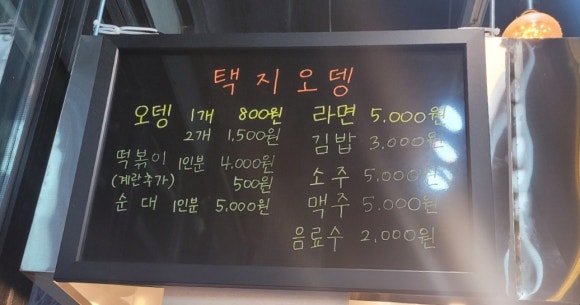 택지오뎅
오뎅 1개 800원
2개 1,500원
떡볶이 1인분 4,000원
(계란추가) 500원
순대 1인분 5,000원
라면 5,000원
김밥 3,000원
소주 5,000원
맥주 5,000원
음료수 2,000원